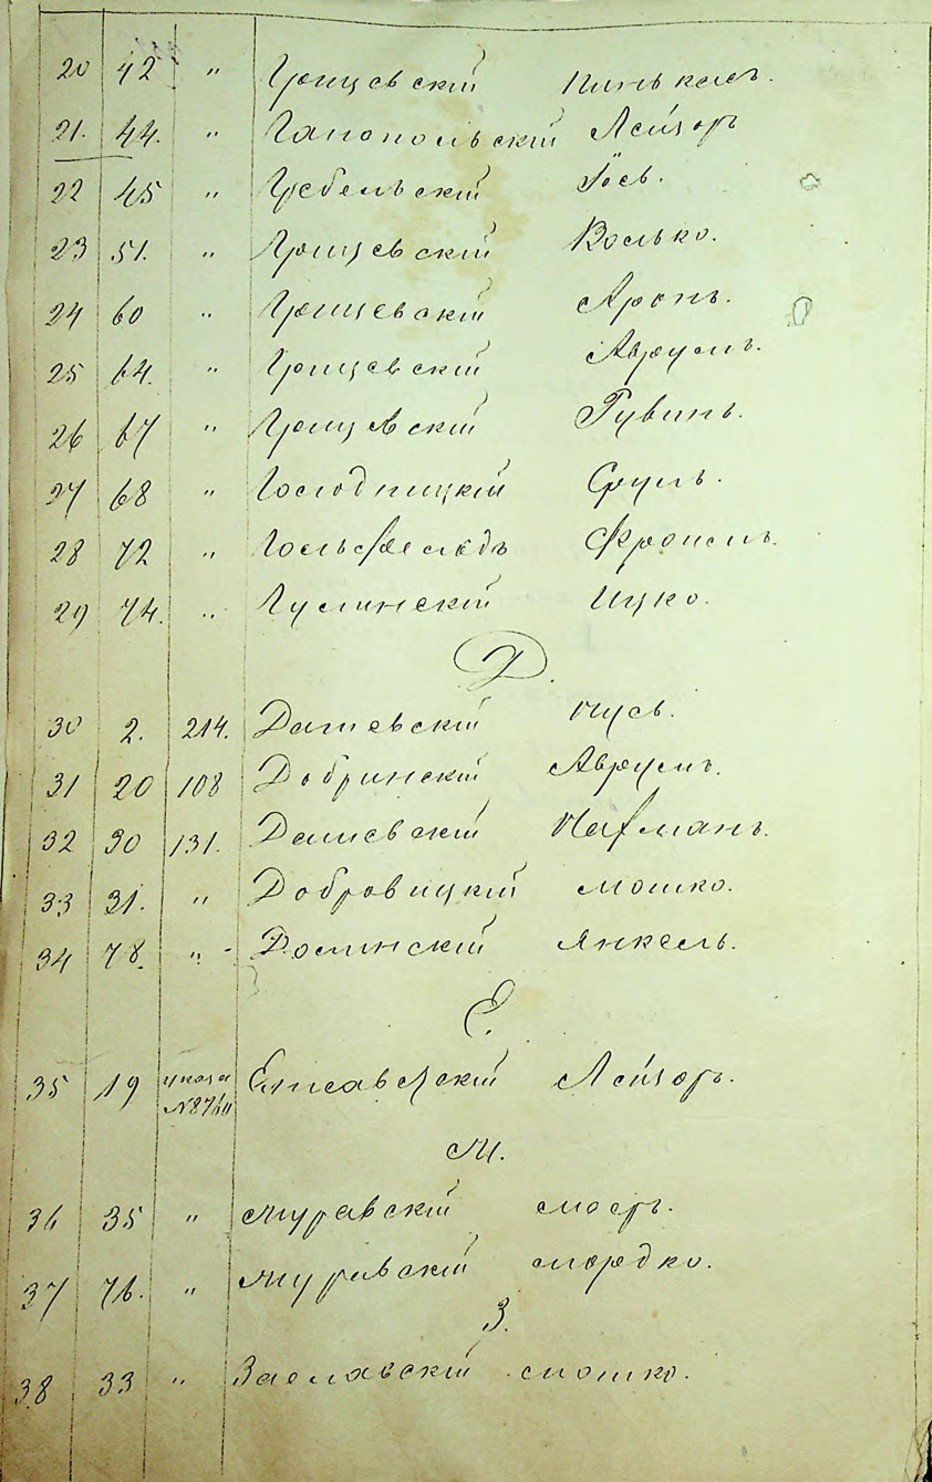 20 42 " Грищевскій Пинькасъ.
21. 44. " Ганопольскій Лейзоръ
22 45 " Гребельскій Іось.
23 51. " Грищевскій Волько.
24 60 " Грищевскій Аронъ.
25 64. " Грищевскій Аврумъ.
26 67 " Грищевскій Рувинъ.
27 68 " Господницкій Сруль.
28 72 " Гольсфельдъ Фроимъ.
29 74. " Гуслинскій Ицко.
Д.
30 2. 214. Дашевскій Нусь.
31 20 108 Добринскій Аврумъ.
32 30 131. Дашевскій Нафманъ.
33 31. " Добровицкій Мошко.
34 78. " Долинскій Янкель.
Е.
35 19 указа Елисавецкій Лейзоръ.
№8760
М.
36 35 " Муравскій Мосеръ.
37 76. " Муравскій Мордко.
З.
38 33 " Заславскій Мошко.